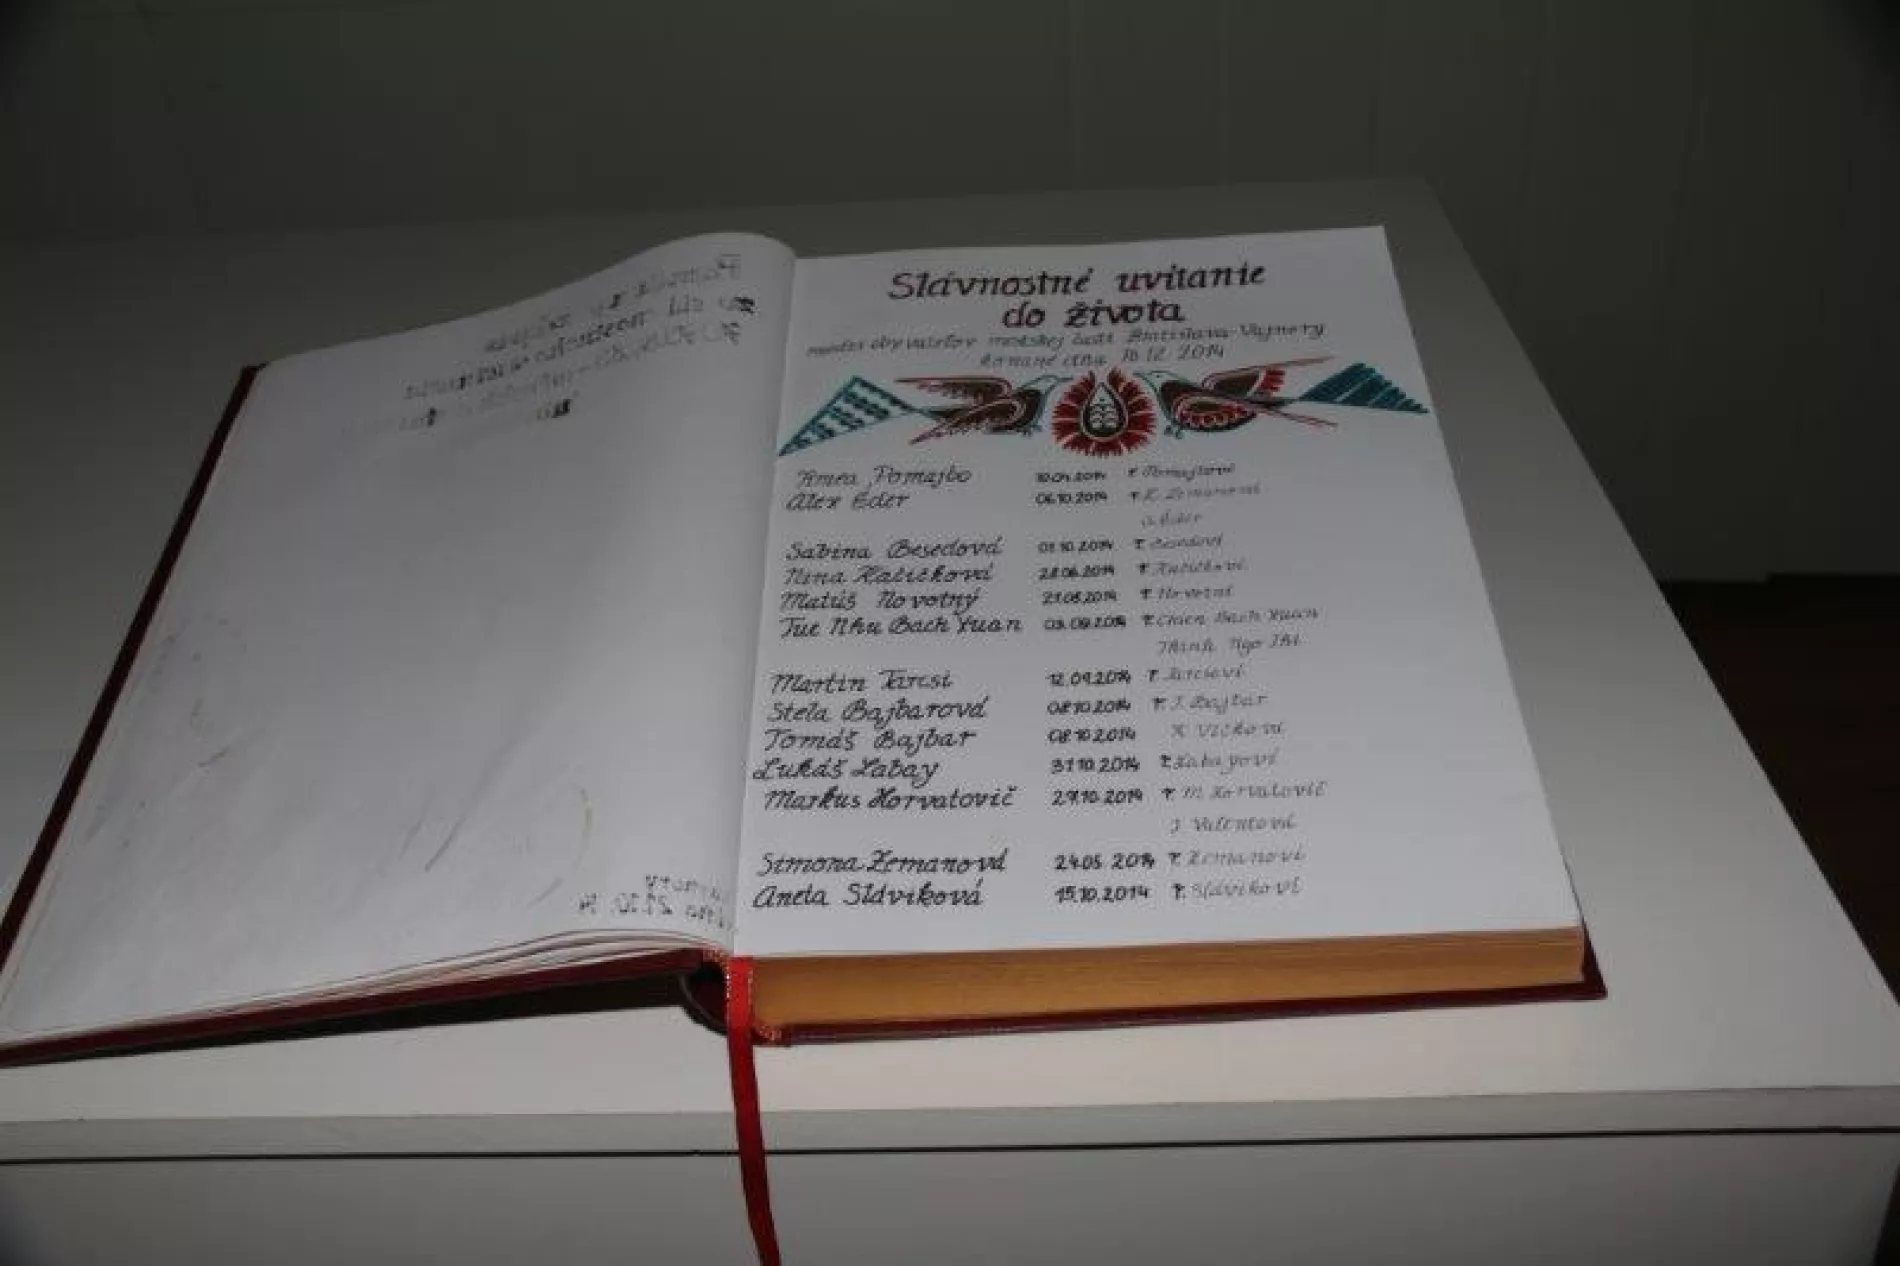 Slávnostné uvítanie
do života
medzi obyvateľov mestskej časti Bratislava-Vajnory
konané dňa 10.12.2014
Pomajbo 10.09.2014 r. Pomajbovi
Alex Eder 06.10.2014 r. K. Zemanová
Eder
Sabina Besedová 01.10.2014 r. Besedovi
Nina Hačičková 28.06.2014 r. Hačičkovi
Matúš Novotný 21.08.2014 r. Novotní
Tue Nhu Bach Xuan 03.09.2014 r. Chien Bach Xuan
Thinh Ngo Thi
Martin Tarcsi 12.09.2014 r. Tarcsiovi
Stela Bajbarová 08.10.2014 r. J. Bajbar
Tomáš Bajbar 08.10.2014 Vlčková
Lukáš Labay 31.10.2014 r. Labayovi
Markus Horvatovič 27.10.2014 r. M. Horvatovič
J. Valentová
Simona Zemanová 24.05.2014 r. Zemanovi
Aneta Sláviková 15.10.2014 r. Slávikovi